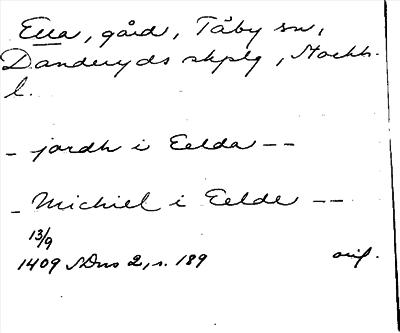 Ella, gård, Täby sn,
Danderyds skplg, Stockh.
l.
- jordh i Eelda --
- Michiel i Eelde --
13/9
1409 SDns 2, s. 189 orig.